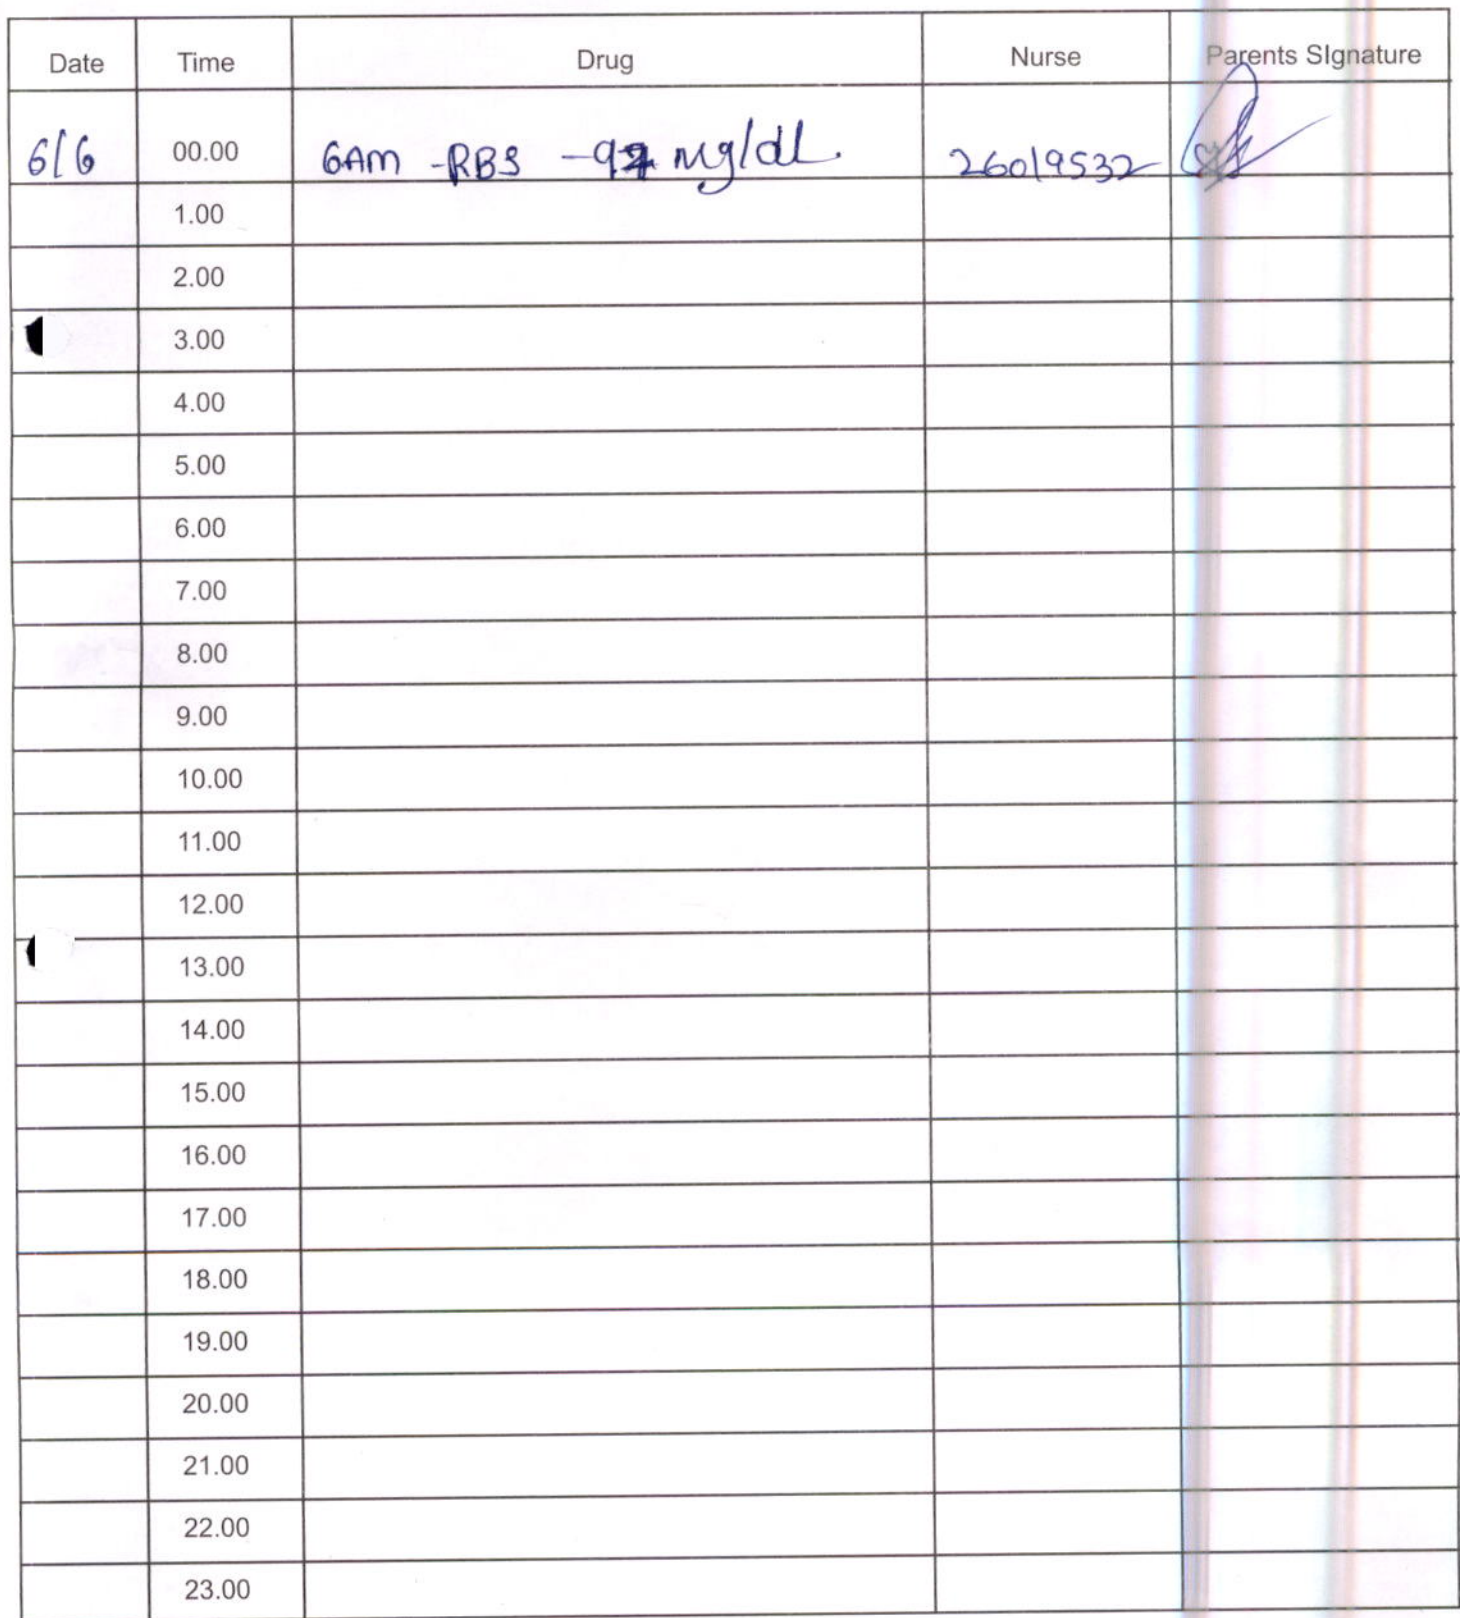 Date Time Drug Nurse Parents SIgnature
6/6 00.00 6AM -RBS - mg/dl. 26019532
1.00
2.00
3.00
4.00
5.00
6.00
7.00
8.00
9.00
10.00
11.00
12.00
13.00
14.00
15.00
16.00
17.00
18.00
19.00
20.00
21.00
22.00
23.00